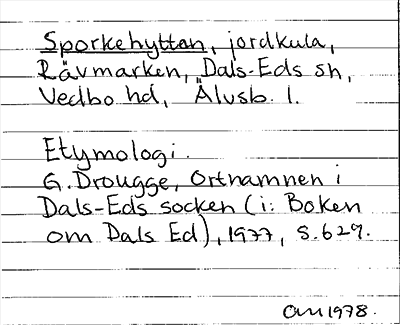 Sporkehyttan, jordkula,
Rävmarken, Dals-Eds sn,
Vedbo hd, Älvsb. l.
Etymologi.
G. Drougge, Ortnamnen i
Dals-Eds socken (i: Boken
om Dals Ed), 1977, s. 629.
1978.